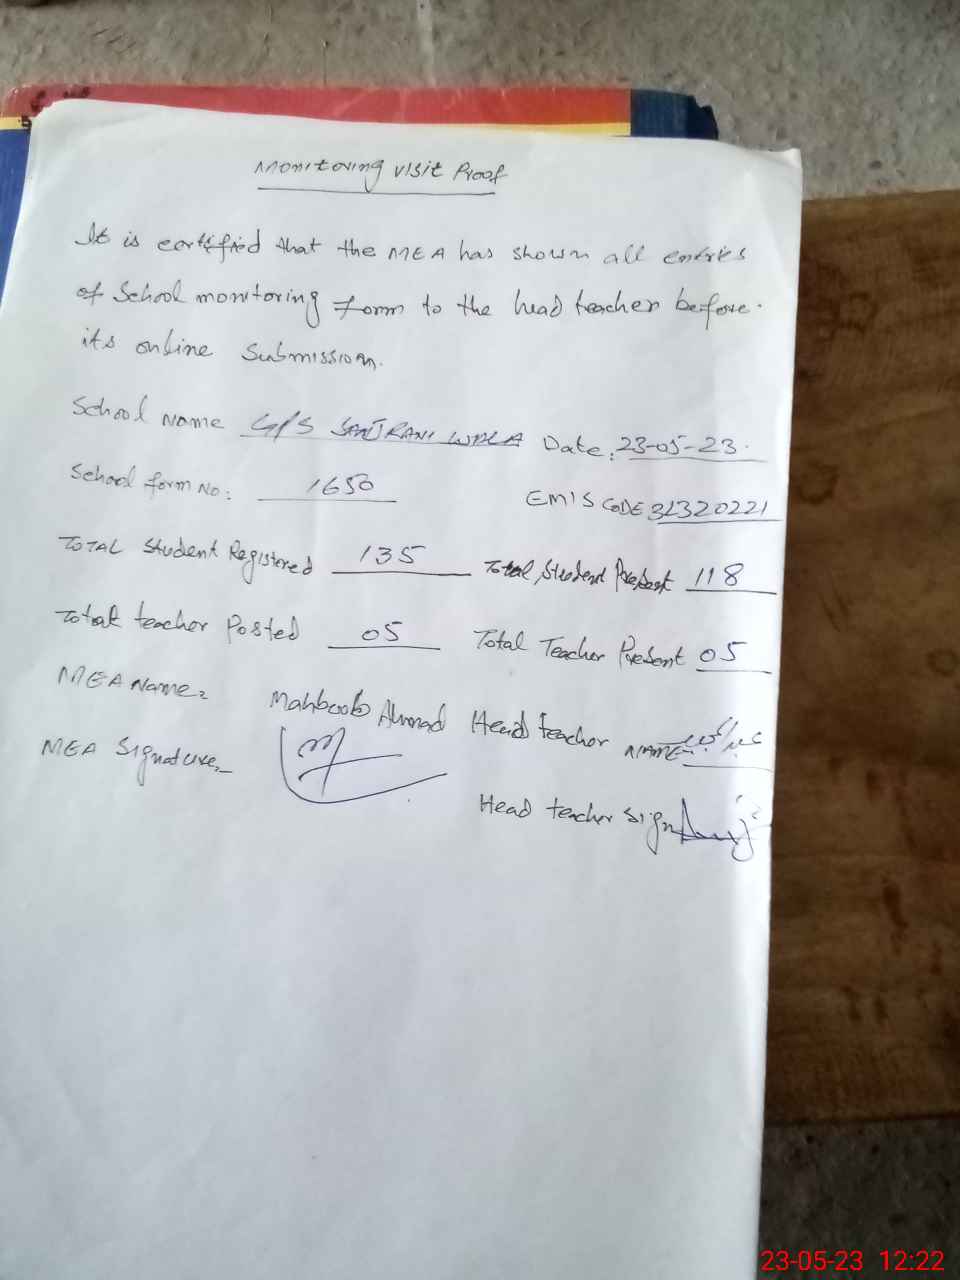 Monitoring visit Proof
It is certified that the MEA has shown all entries
of School monitoring form to the head teacher before.
its online Submission.
School Name G/S SANJRANI WALA Date: 23-05-23.
School form No: 1650 EMIS CODE 32320221
TOTAL Student Registered 135 Total Student Present 118
Total teacher Posted 05 Total Teacher Present 05
MEA Name: Mahboob Ahmad Head teacher NAME
MEA Signature
Head teacher Sign
23-05-23 12:22